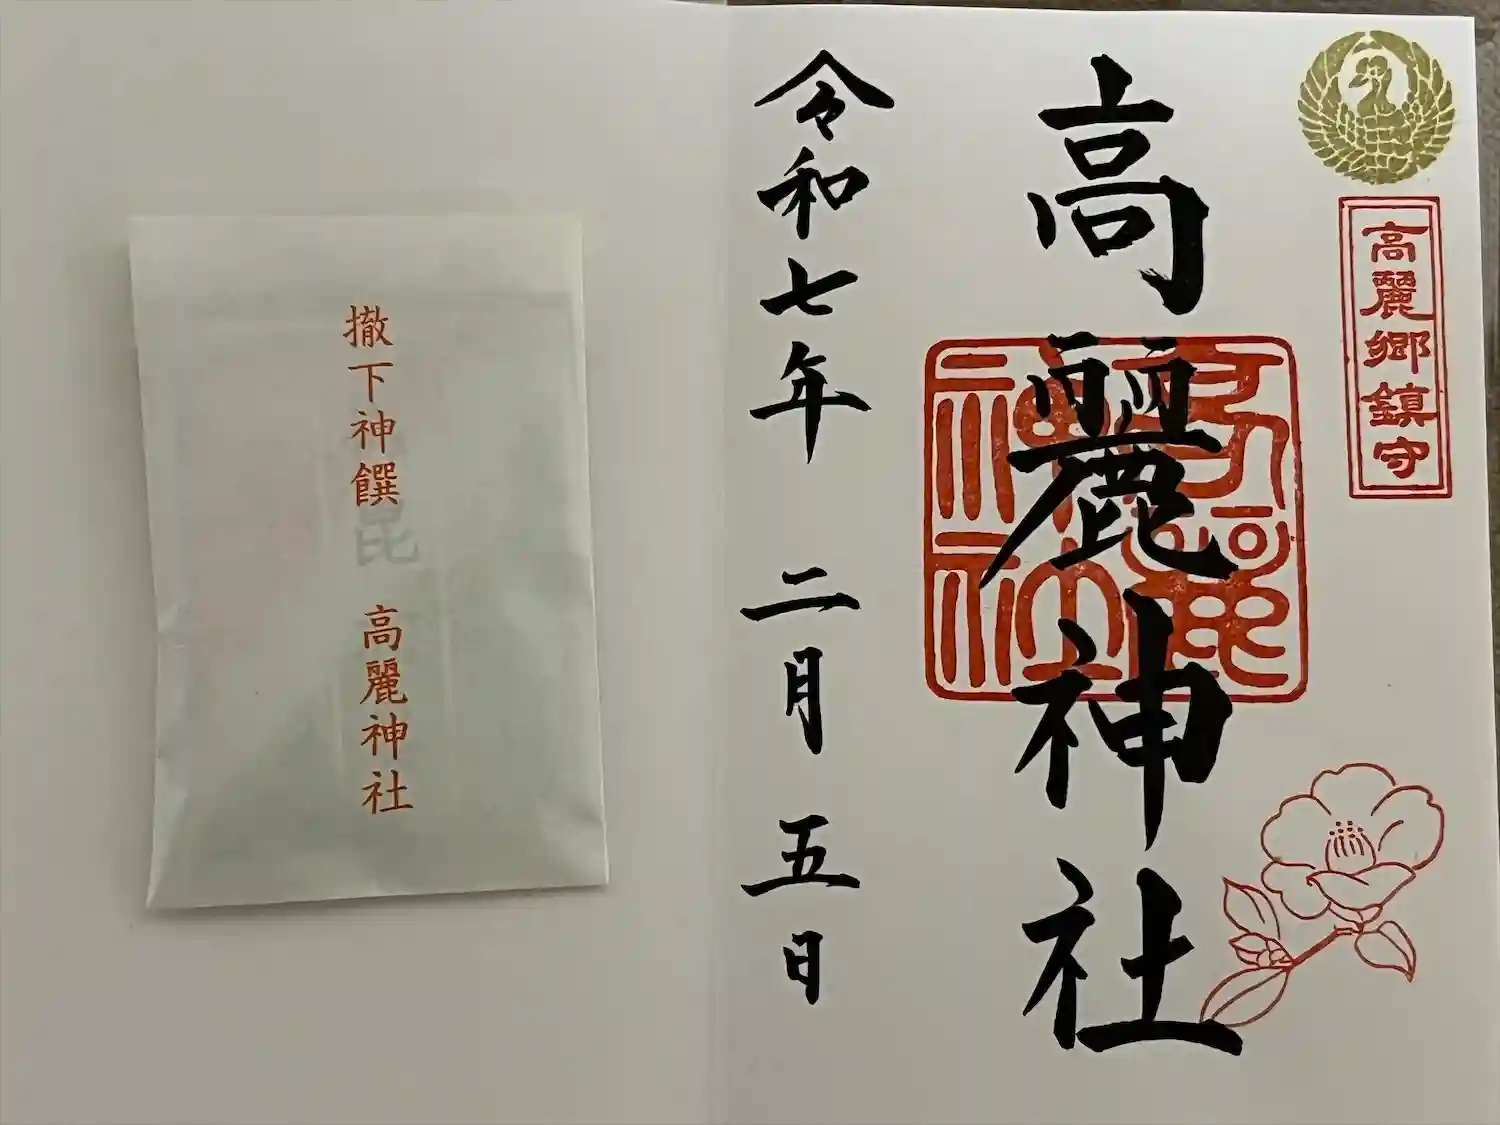 高麗郷鎮守
高麗神社
令和七年 二月 五日
撤下神饌 高麗神社
昆